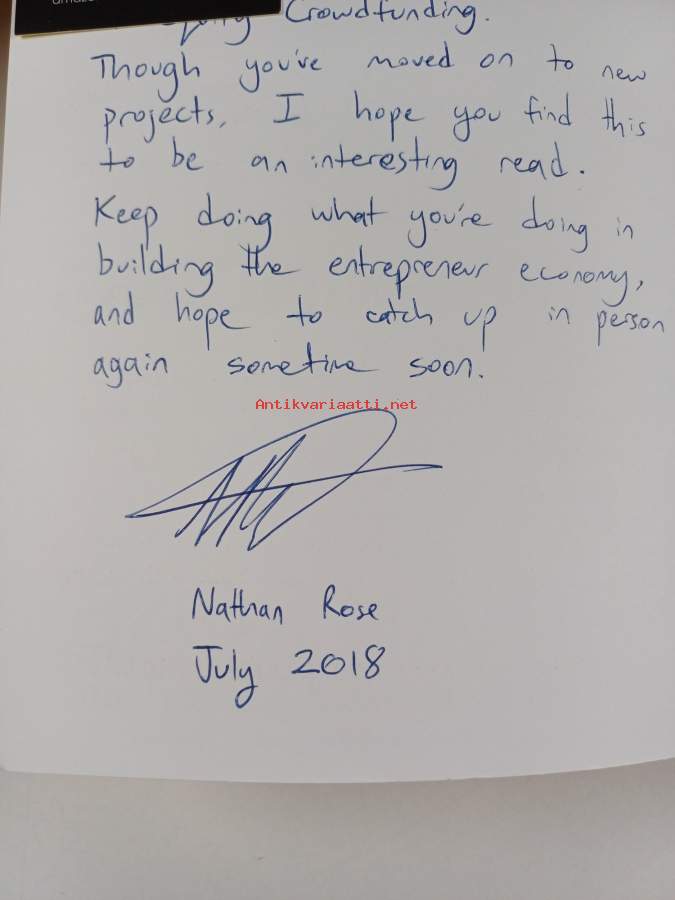 Crowdfunding.
Though you've moved on to new
projects, I hope you find this
to be an interesting read.
Keep doing what you're doing in
building the entrepreneur economy,
and hope to catch up in person
again sometime soon.
Antikvariaatti.net
Nathan Rose
July 2018